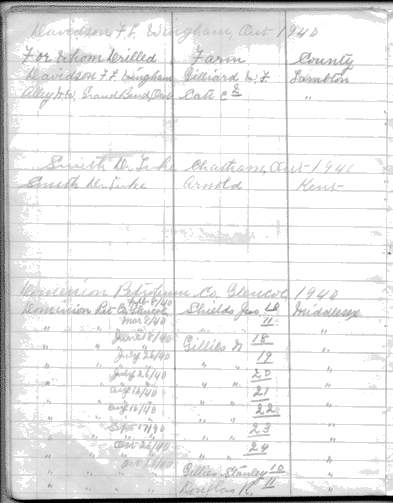 Davidson F.F. Wingham, Ont 1940
For Whom Drilled Farm County
Davidson F.F. Wingham Gilliard & F Lambton
Grand Bend, Ont Cate C 2 "
Smith De Luke Chatham, Ont 1940
Smith De Luke Arnold Kent
Dominion Petroleum Co. Glencoe, 1940
Feb 8/40
Dominion Pet Co Glencoe Shields Jas 10 Middlesex
Mar 8/40 " " 11 "
June 18/40 Gillies N 18 "
July 26/40 " " 19 "
July 26/40 " " 20 "
Aug 16/40 " " 21 "
Aug 16/40 " " 22 "
Sept 17/40 " " 23 "
Oct 26/40 " " 24 "
Gillies Stanley 10 "
11 "